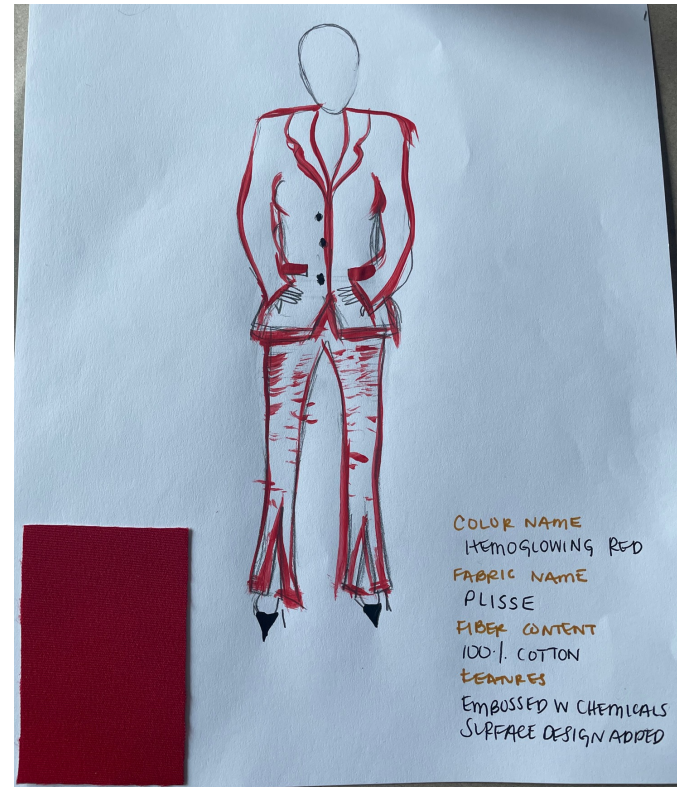 COLOR NAME
HEMOGLOWING RED
FABRIC NAME
PLISSE
FIBER CONTENT
100% COTTON
FEATURES
EMBOSSED W CHEMICALS
SURFACE DESIGN ADDED